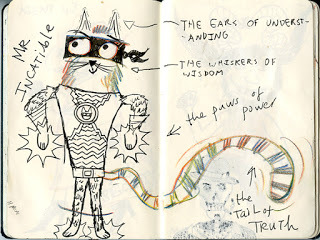 MR
INCATIBLE
THE EARS OF UNDERST-
ANDING
THE WHISKERS OF
WISDOM
the paws of
power
the
Tail of
TRUTH